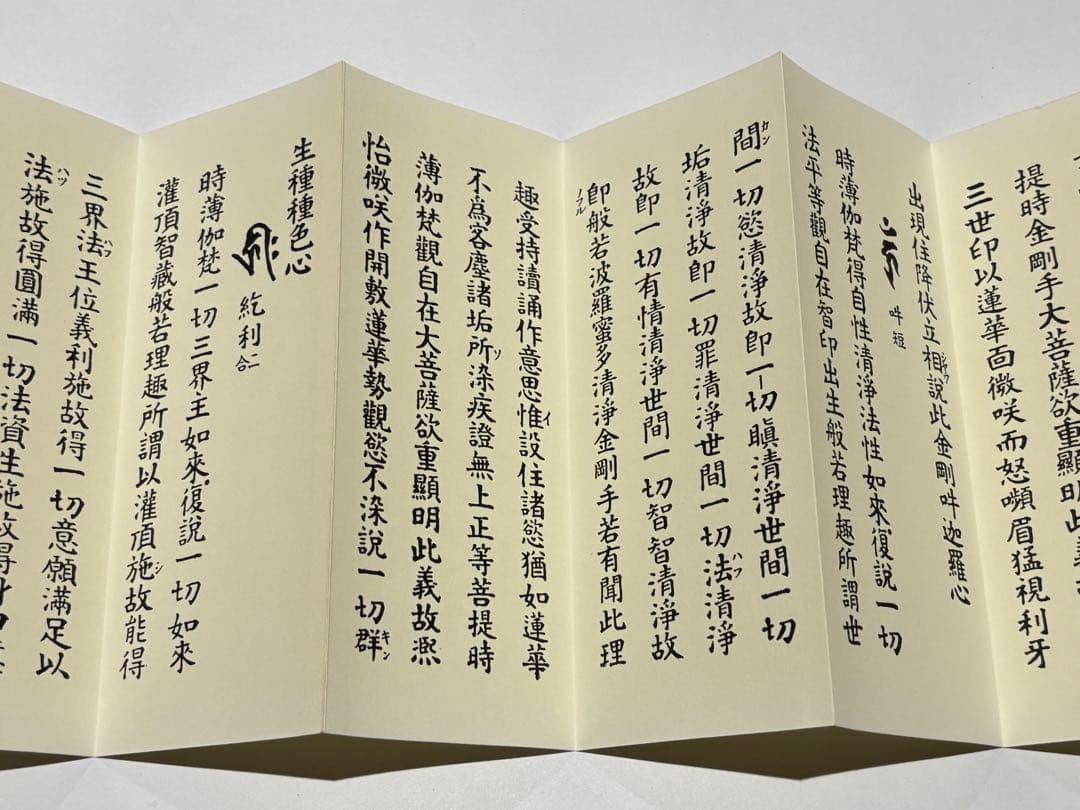 提時金剛手大菩薩欲重顯明此義
三世印以蓮華面微咲而怒嚬眉猛視利牙
出現住降伏立相說此金剛吽迦羅心
シヤウ
吽短
時薄伽梵得自性清淨法性如來復說一切
法平等觀自在智印出生般若理趣所謂世
間一切慾清淨故即一切瞋清淨世間一切
カン
垢清淨故即一切罪清淨世間一切法清淨
ハフ
故即一切有情清淨世間一切智智清淨故
即般若波羅蜜多清淨金剛手若有聞此理
趣受持讀誦作意思惟設住諸慾猶如蓮華
イ
不為客塵諸垢所染疾證無上正等菩提時
ソ
薄伽梵觀自在大菩薩欲重顯明此義故熈
怡微咲作開敷蓮華勢觀慾不染說一切群
キン
生種種色心
紇利二合
時薄伽梵一切三界主如來復說一切如來
灌頂智藏般若理趣所謂以灌頂施故能得
シ
三界法王位義利施故得一切意願滿足以
ハフ
法施故得圓滿一切法資生施故得
ハフ